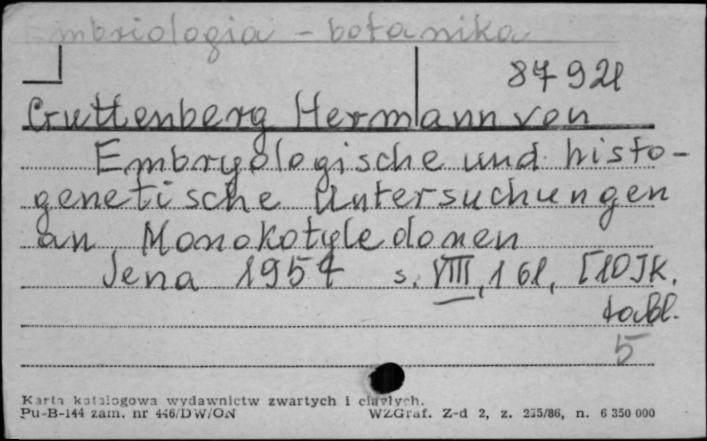 Embriologia - botanika
87921
Guttenberg Hermann von
Embryologische und histo-
genetische Untersuchungen
an Monokotyledonen
Jena 1954 s. VIII, 161, [10]K.
tabl.
5
Karta katalogowa wydawnictw zwartych i ciągłych.
Pu-B-144 zam. nr 446/DW/ON WZGraf. Z-d 2, z. 235/86, n. 6 350 000